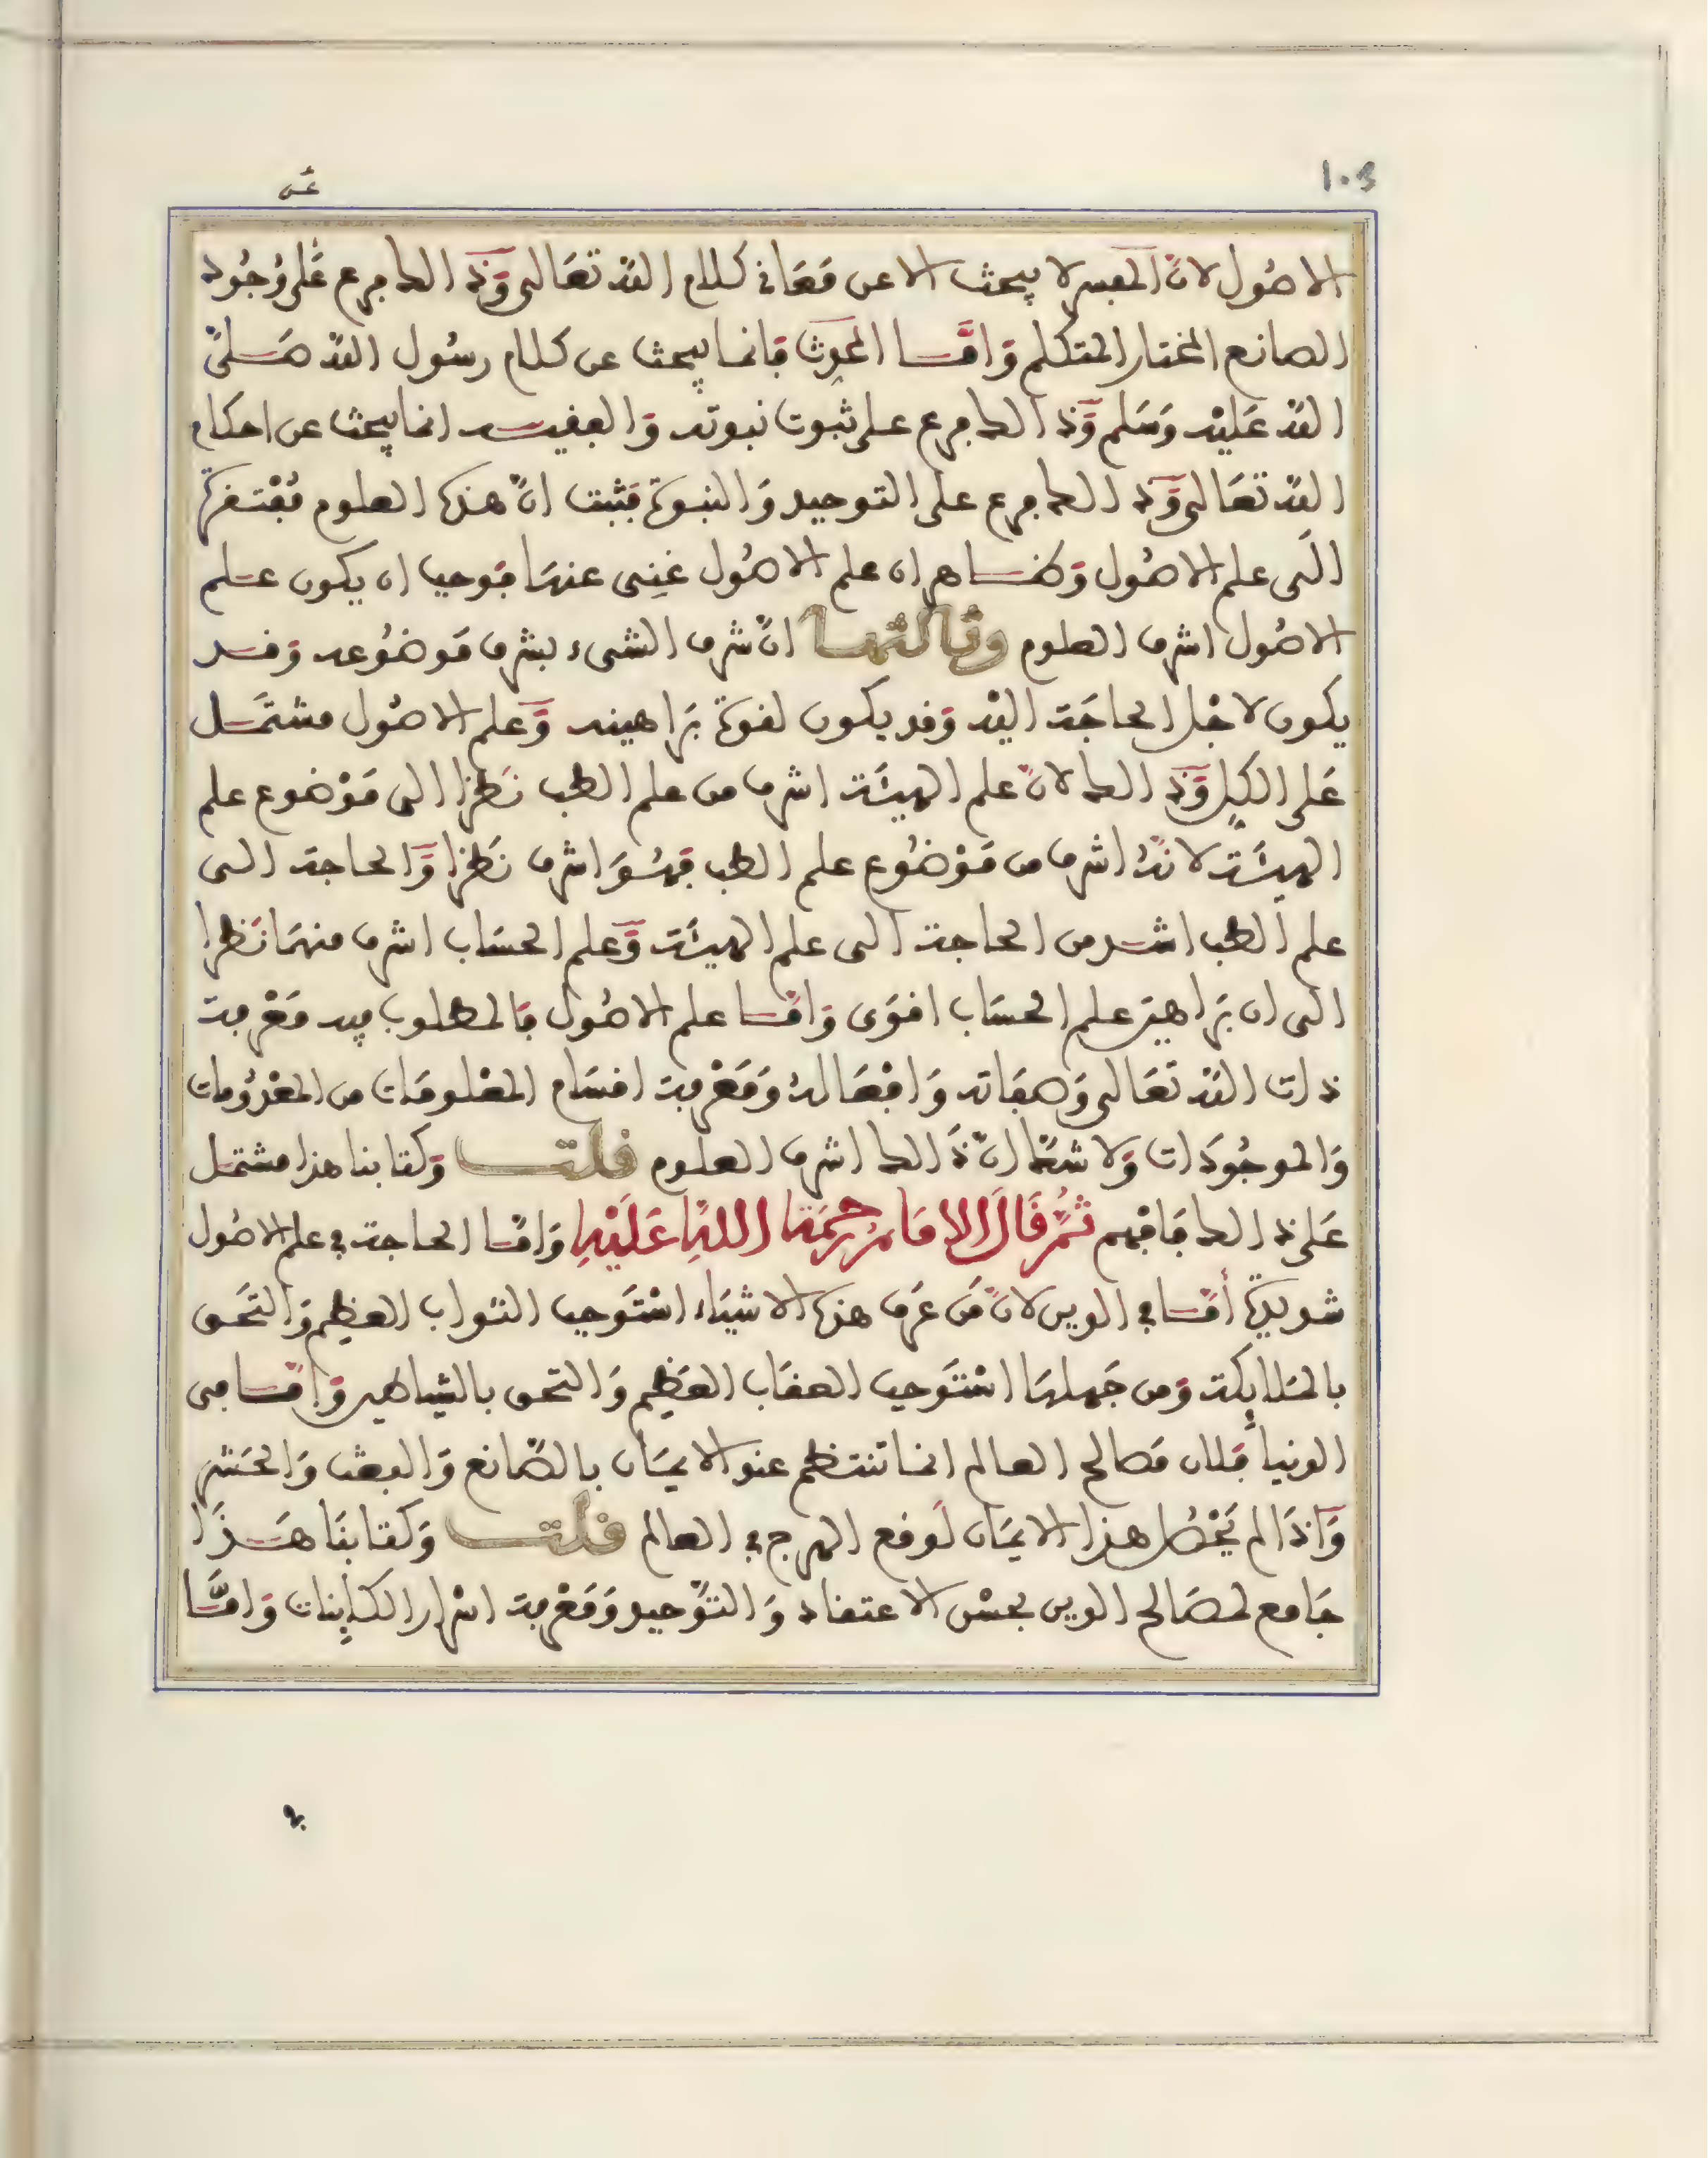 103
الاصُول لانّ المفسر لا يبحث الا عن مَعَاني كلام الله تعَالى وَذلك فرع عَلى وُجُود
الصانع المختار المتكلم وَامَّا المحدث فانما يبحث عن كلام رسُول الله صَلى
الله عَليْه وَسَلم وَذلك فرع على ثبوت نبوته وَالفقيه انما يبحث عن احكام
الله تعَالى وَذلك فرع على التوحيد وَالنبوة فثبت انّ هذه العلوم مُفْتقرة
الَى علم الاصُول وَظاهر ان علم الاصُول غنِى عنهَا فوجب ان يكون علم
الاصُول اشرف العلوم وثالثها انّ شرف الشىء بشرف مَوضُوعه وَقد
يكون لاجْل الحاجَة اليْه وَقد يكون لقوة بَراهينه وَعلم الاصُول مشتمَل
عَلى الكل وَذلك لانّ علم الهيئَة اشرف من علم الطب نَظرا الى مَوْضوع علم
الهيئَة لانهُ اشرف من مَوْضُوع علم الطب فهُوَ اشرف نَظرا وَالحاجة الى
علم الطب اشد من الحاجة الى علم الهيئَة وَعلم الحسَاب اشرف منهمَا نَظرا
الى ان بَراهيَن علم الحسَاب اقوَى وَامَّا علم الاصُول فالمطلوب فيه مَعْرفة
ذات الله تعَالى وَصفاته وَافعَالهُ وَمَعْرفة اقسَام المعْلومَات من المعْدُومات
وَالموجُودَات وَلا شكّ انّ ذَلك اشرف العلوم قلت وَكتابنا هذا مشتمل
عَلى ذلك فَافهم ثُمَّ قَالَ الامَامُ رَحِمَهُ اللهُ عَلَيْهِ وَامَّا الحاجة في علم الاصُول
شديدة أمَّا في الدين لانّ مَن عَرف هذه الاشيَاء اسْتَوجب الثواب العظيم وَالتحَق
بالملائكة وَمن جَهلهَا اسْتَوجب العقَاب العَظيم وَالتحق بالشياطين وَامَّا في
الدنيا فَلان مَصالح العالم انما تنتظم عند الايمَان بالصَّانع وَالبعث وَالحَشر
وَاذَا لم يَحْصُل هذا الايمَان لَوقع الهرج في العالم قلت وَكتابنَا هَذَا
جَامع لمصَالح الدين بحسْن الاعتقاد وَالتوْحيد وَمَعْرفة اسْرار الكائِنات وَامَّا